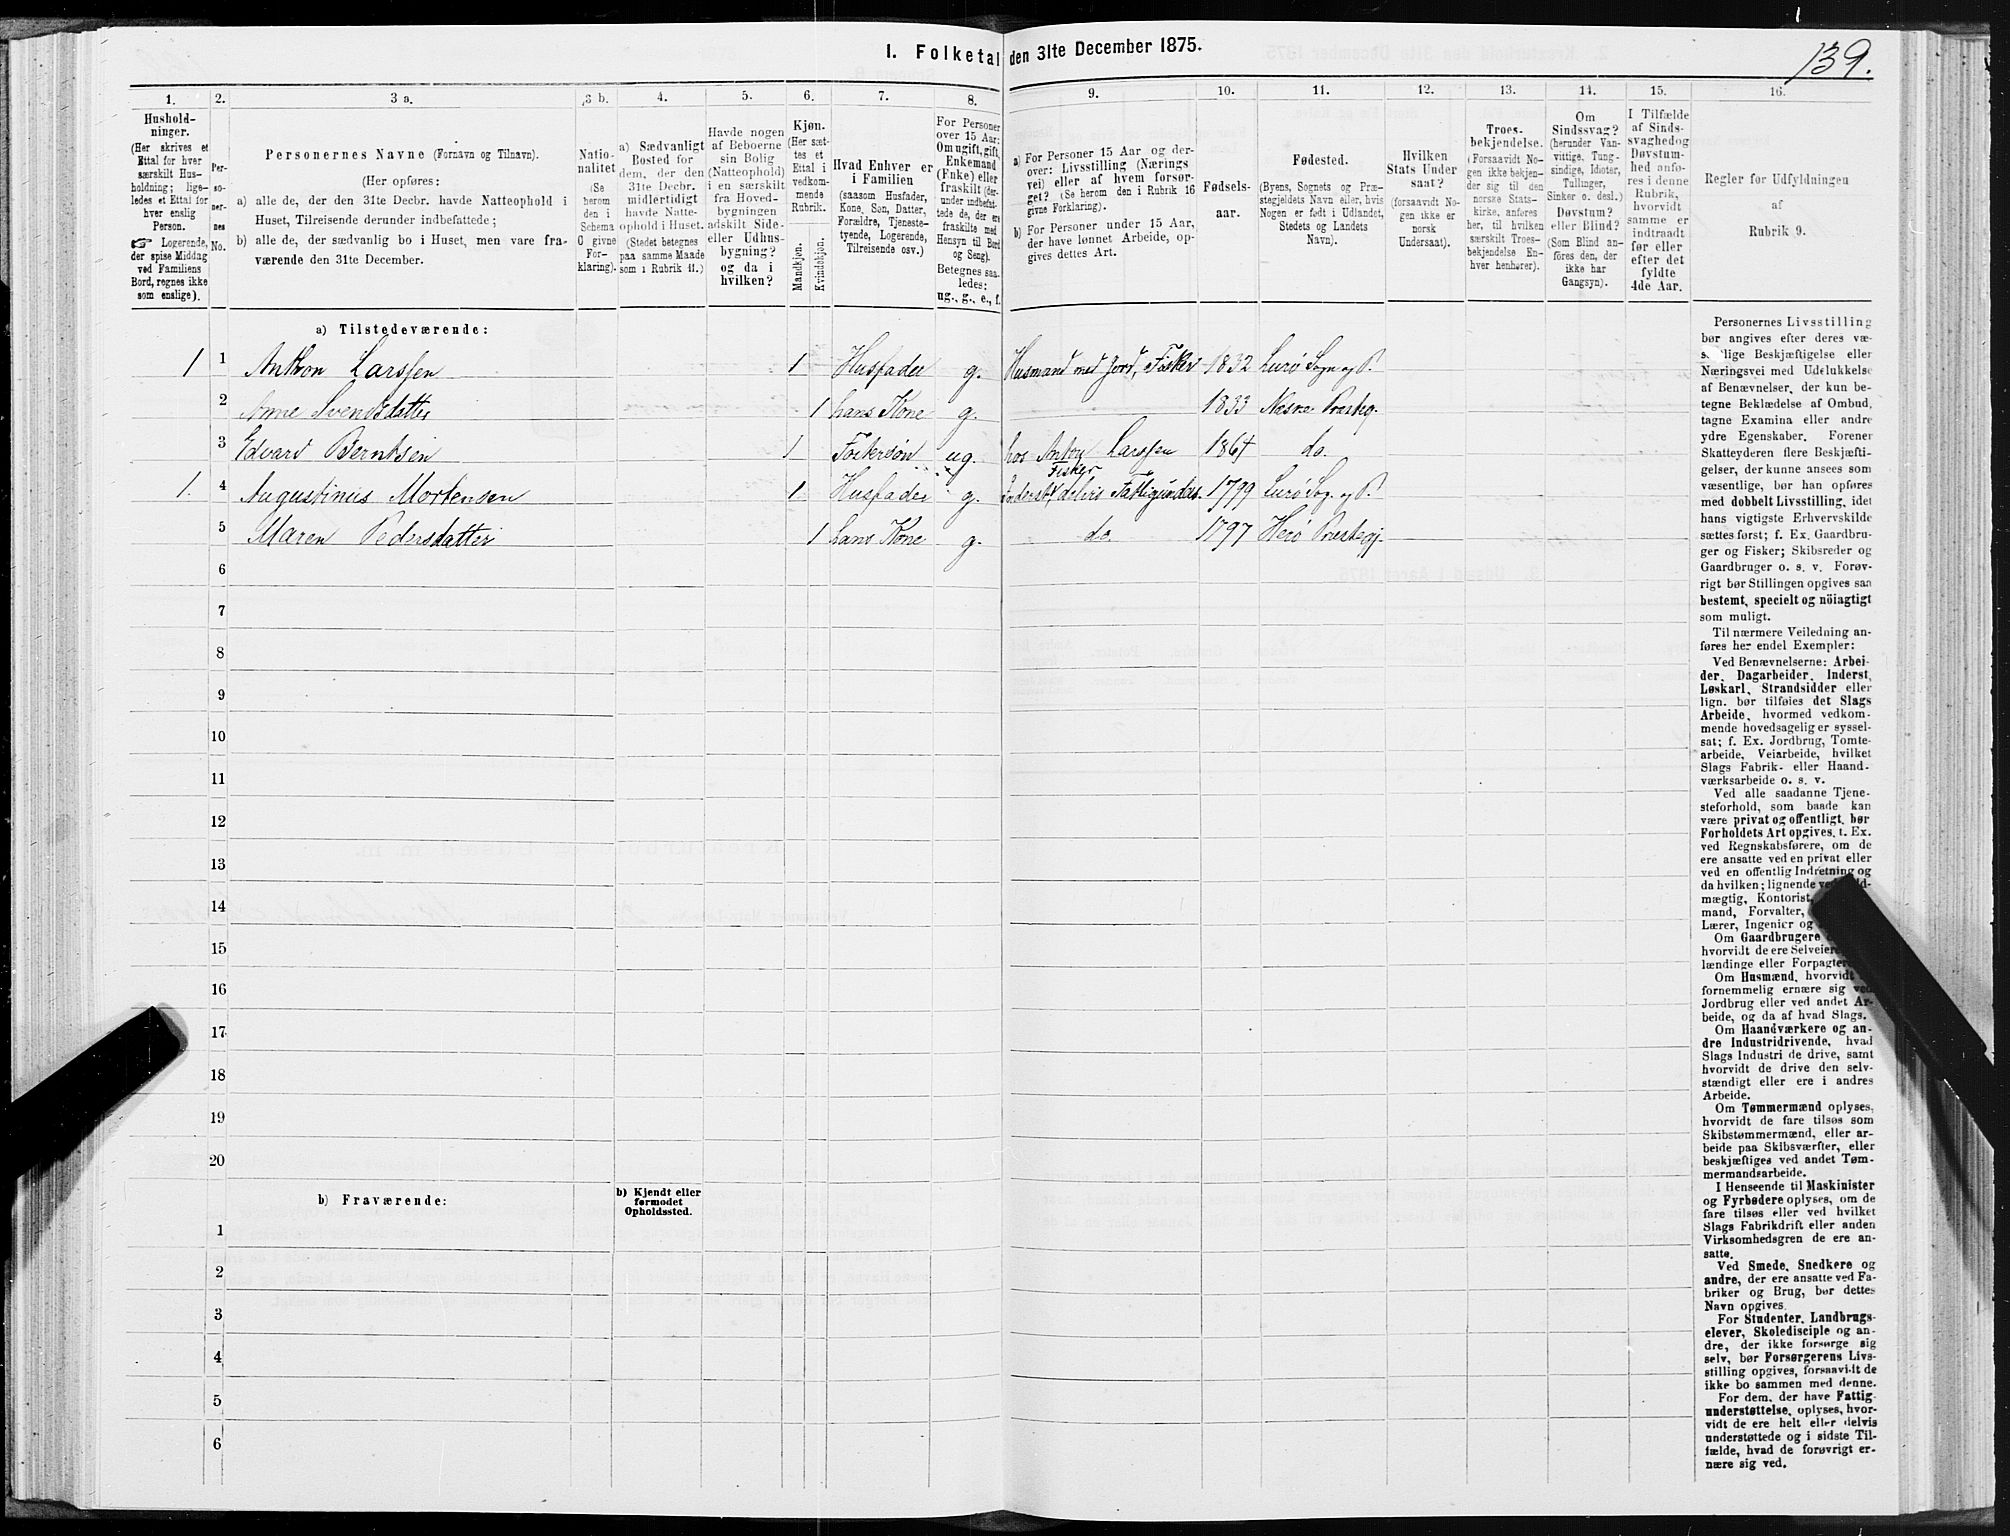 I. Folketal den 31te December 1875.
139.
1.
Hushold-
ninger.
(Her skrives et
Ettal for hver
særskilt Hus-
holdning; lige-
ledes et Ettal for
hver enslig
Person.
☞ Logerende,
der spise Middag
ved Familiens
Bord, regnes ikke
som enslige).
2.
Per-
so-
ner-
nes
No.
3 a.
Personernes Navne (Fornavn og Tilnavn).
(Her opføres:
a) alle de, der den 31te Decbr. havde Natteophold i
Huset, Tilreisende derunder indbefattede;
b) alle de, der sædvanlig bo i Huset, men vare fra-
værende den 31te December.
3 b.
Natio-
nalitet
(Se
herom
den i
Schema
C givne
For-
klaring).
4.
a) Sædvanligt
Bosted for
dem, der den
31te Decbr.
midlertidigt
havde Natte-
ophold i Huset.
(Stedet betegnes
paa samme Maade
som i Rubrik 11.)
5.
Havde nogen
af Beboerne
sin Bolig
(Natteophold)
i en særskilt
fra Hoved-
bygningen
adskilt Side-
eller Udhus-
bygning?
og da i
hvilken?
6.
Kjøn.
(Her sæt-
tes et
Ettal i
vedkom-
mende
Rubrik.
Mandkjøn.
Kvindekjøn.
7.
Hvad Enhver er
i Familien
(saasom Husfader,
Kone, Søn, Datter,
Forældre, Tjeneste-
tyende, Logerende,
Tilreisende osv.)
8.
For Personer
over 15 Aar:
Om ugift, gift,
Enkemand
(Enke) eller
fraskilt (der-
under indbefat-
tede de, der ere
fraskilte med
Hensyn til Bord
og Seng).
Betegnes saa-
ledes:
ug., g., e., f.
9.
a) For Personer 15 Aar og der-
over: Livsstilling (Nærings
vei) eller af hvem forsør-
get? (Se herom den i Rubrik 16
givne Forklaring).
b) For Personer under 15 Aar,
der have lønnet Arbeide, op-
gives dettes Art.
10.
Fødsels-
aar.
11.
Fødested.
(Byens, Sognets og Præ-
stegjeldets Navn eller, hvis
Nogen er født i Udlandet,
Stedets og Landets
Navn).
12.
Hvilken
Stats Under
saat?
(forsaavidt No-
gen ikke er
norsk
Undersaat).
13.
Troes-
bekjendelse.
(Forsaavidt No-
gen ikke bekjen-
der sig til den
norske Stats-
kirke, anføres
her, til hvilken
særskilt Troes-
bekjendelse En-
hver henhører).
14.
Om
Sindssvag?
(herunder Van-
vittige, Tung-
sindige, Idioter,
Tullinger,
Sinker o. desl.)
Døvstum?
eller Blind?
(Som Blind an-
føres den, der
ikke har
Gangsyn).
15.
I Tilfælde
af Sinds-
svaghed og
Døvstum-
hed anfø-
res i denne
Rubrik,
hvorvidt
samme er
indtraadt
før eller
efter det
fyldte
4de Aar.
16.
Regler for Udfyldningen
af
Rubrik 9.
a) Tilstedeværende:
1 1 Anthon Larssen 1 Husfader g. Husmand med Jord, Fisker 1832 Lurø Sogn og P.
2 Anne Svendsdatter 1 hans Kone g. 1833 Næsne Præsteg.
3 Edvard Berntsen 1 Fostersøn ug. hos Anton Larssen 1864 do.
Fisker
1. 4 Augustinus Mortensen 1 Husfader g. Inderst delvis Fattigunders. 1799 Lurø Sog. og P.
5 Maren Pedersdatter 1 hans Kone g. do. 1797 Herø Præstegj.
6
7
8
9
10
11
12
13
14
15
16
17
18
19
20
b) Fraværende:
b) Kjendt eller
formodet
Opholdssted.
1
2
3
4
5
6
Personernes Livsstilling
bør angives efter deres væ-
lige Beskjæftigelse eller
Næringsvei med Udelukkelse
af Benævnelser, der kun be-
tegne Beklædelse af Ombud,
tagne Examina eller andre
ydre Egenskaber. Forener
Skatteyderen flere Beskjæfti-
gelser, der kunne ansees som
væsentlige, bør han opføres
med dobbelt Livsstilling, idet
hans vigtigste Erhvervskilde
sættes først; f. Ex. Gaardbru-
ger og Fisker; Skibsreder og
Gaardbruger o. s. v. Forøv-
rigt bør Stillingen opgives saa
bestemt, specielt og nöiagtigt
som muligt.
Til nærmere Veiledning an-
føres her endel Exempler:
Ved Benævnelserne: Arbei-
der, Dagarbeider, Inderst,
Løskarl, Strandsidder eller
lign. bør tilføies det Slags
Arbeide, hvormed vedkom-
mende hovedsagelig er syssel-
sat; f. Ex. Jordbrug, Tomte-
arbeide, Veiarbeide, hvilket
Slags Fabrik- eller Haand-
værksarbeide o. s. v.
Ved alle saadanne Tjene-
steforhold, som baade kan
være privat og offentligt, bør
Forholdets Art opgives, t. Ex.
ved Regnskabsførere, om de
ere ansatte ved en privat eller
ved en offentlig Indretning og
da hvilken; lignende ved
mægtig, Kontorist,
mand, Forvalter,
Lærer, Ingeniør og
Om Gaardbrugere
hvorvidt de ere Selveiere,
lændinge eller Forpagtere.
Om Husmænd, hvorvidt
fornemmelig ernære sig ved
Jordbrug eller ved andet Ar-
beide, og da af hvad Slags.
Om Haandværkere og an-
dre Industridrivende, hvad
Slags Industri de drive, samt
hvorvidt de drive den selv-
stændigt eller ere i andres
Arbeide.
Om Tømmermænd oplyses,
hvorvidt de fare tilsøs som
Skibstømmermænd, eller ar-
beide paa Skibsværfter, eller
beskjæftiges ved andet Tøm-
mermandsarbeide.
I Henseende til Maskinister
og Fyrbødere oplyses, om de
fare tilsøs eller ved hvilket
Slags Fabrikdrift eller anden
Virksomhedsgren de ere an-
satte.
Ved Smede, Snedkere og
andre, der ere ansatte ved Fa-
briker og Brug, bør dettes
Navn opgives.
For Studenter, Landbrugs-
elever, Skoledisciple og an-
dre, der ikke forsørge sig
selv, bør Forsørgerens Livs-
stilling opgives, forsaavidt de
ikke bo sammen med denne.
For dem, der have Fattig-
understøttelse, oplyses, hvor-
vidt de ere helt eller delvis
understøttede og i sidste Til-
fælde, hvad de forøvrigt er-
nære sig ved.